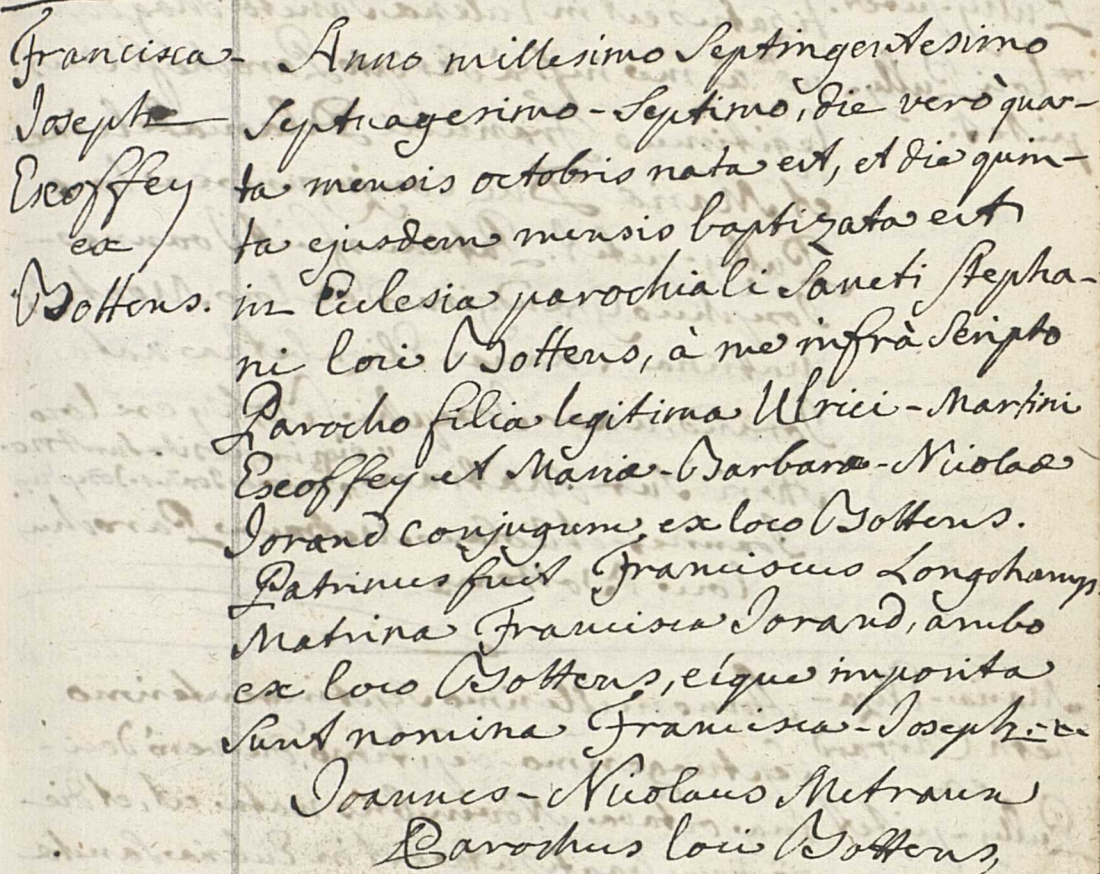 Francisca-
Josepha
Escoffey
ex
Bottens.
Anno millesimo Septingentesimo
Septuagesimo-Septimo, die verò quar-
ta mensis octobris nata est, et die quin-
ta ejusdem mensis baptizata est
in Ecclesia parochiali Sancti Stepha-
ni loci Bottens, à me infrà Scripto
Parocho filia legitima Ulrici-Martini
Escoffey et Mariæ-Barbaræ-Nicolaæ
Jorand conjugum, ex loco Bottens.
Patrinus fuit Franciscus Longchamp
Matrina Francisca Jorand, ambo
ex loco Bottens, eíque imposita
Sunt nomina Francisca-Josepha
Joannes-Nicolaus Metraux
Parochus loci Bottens,